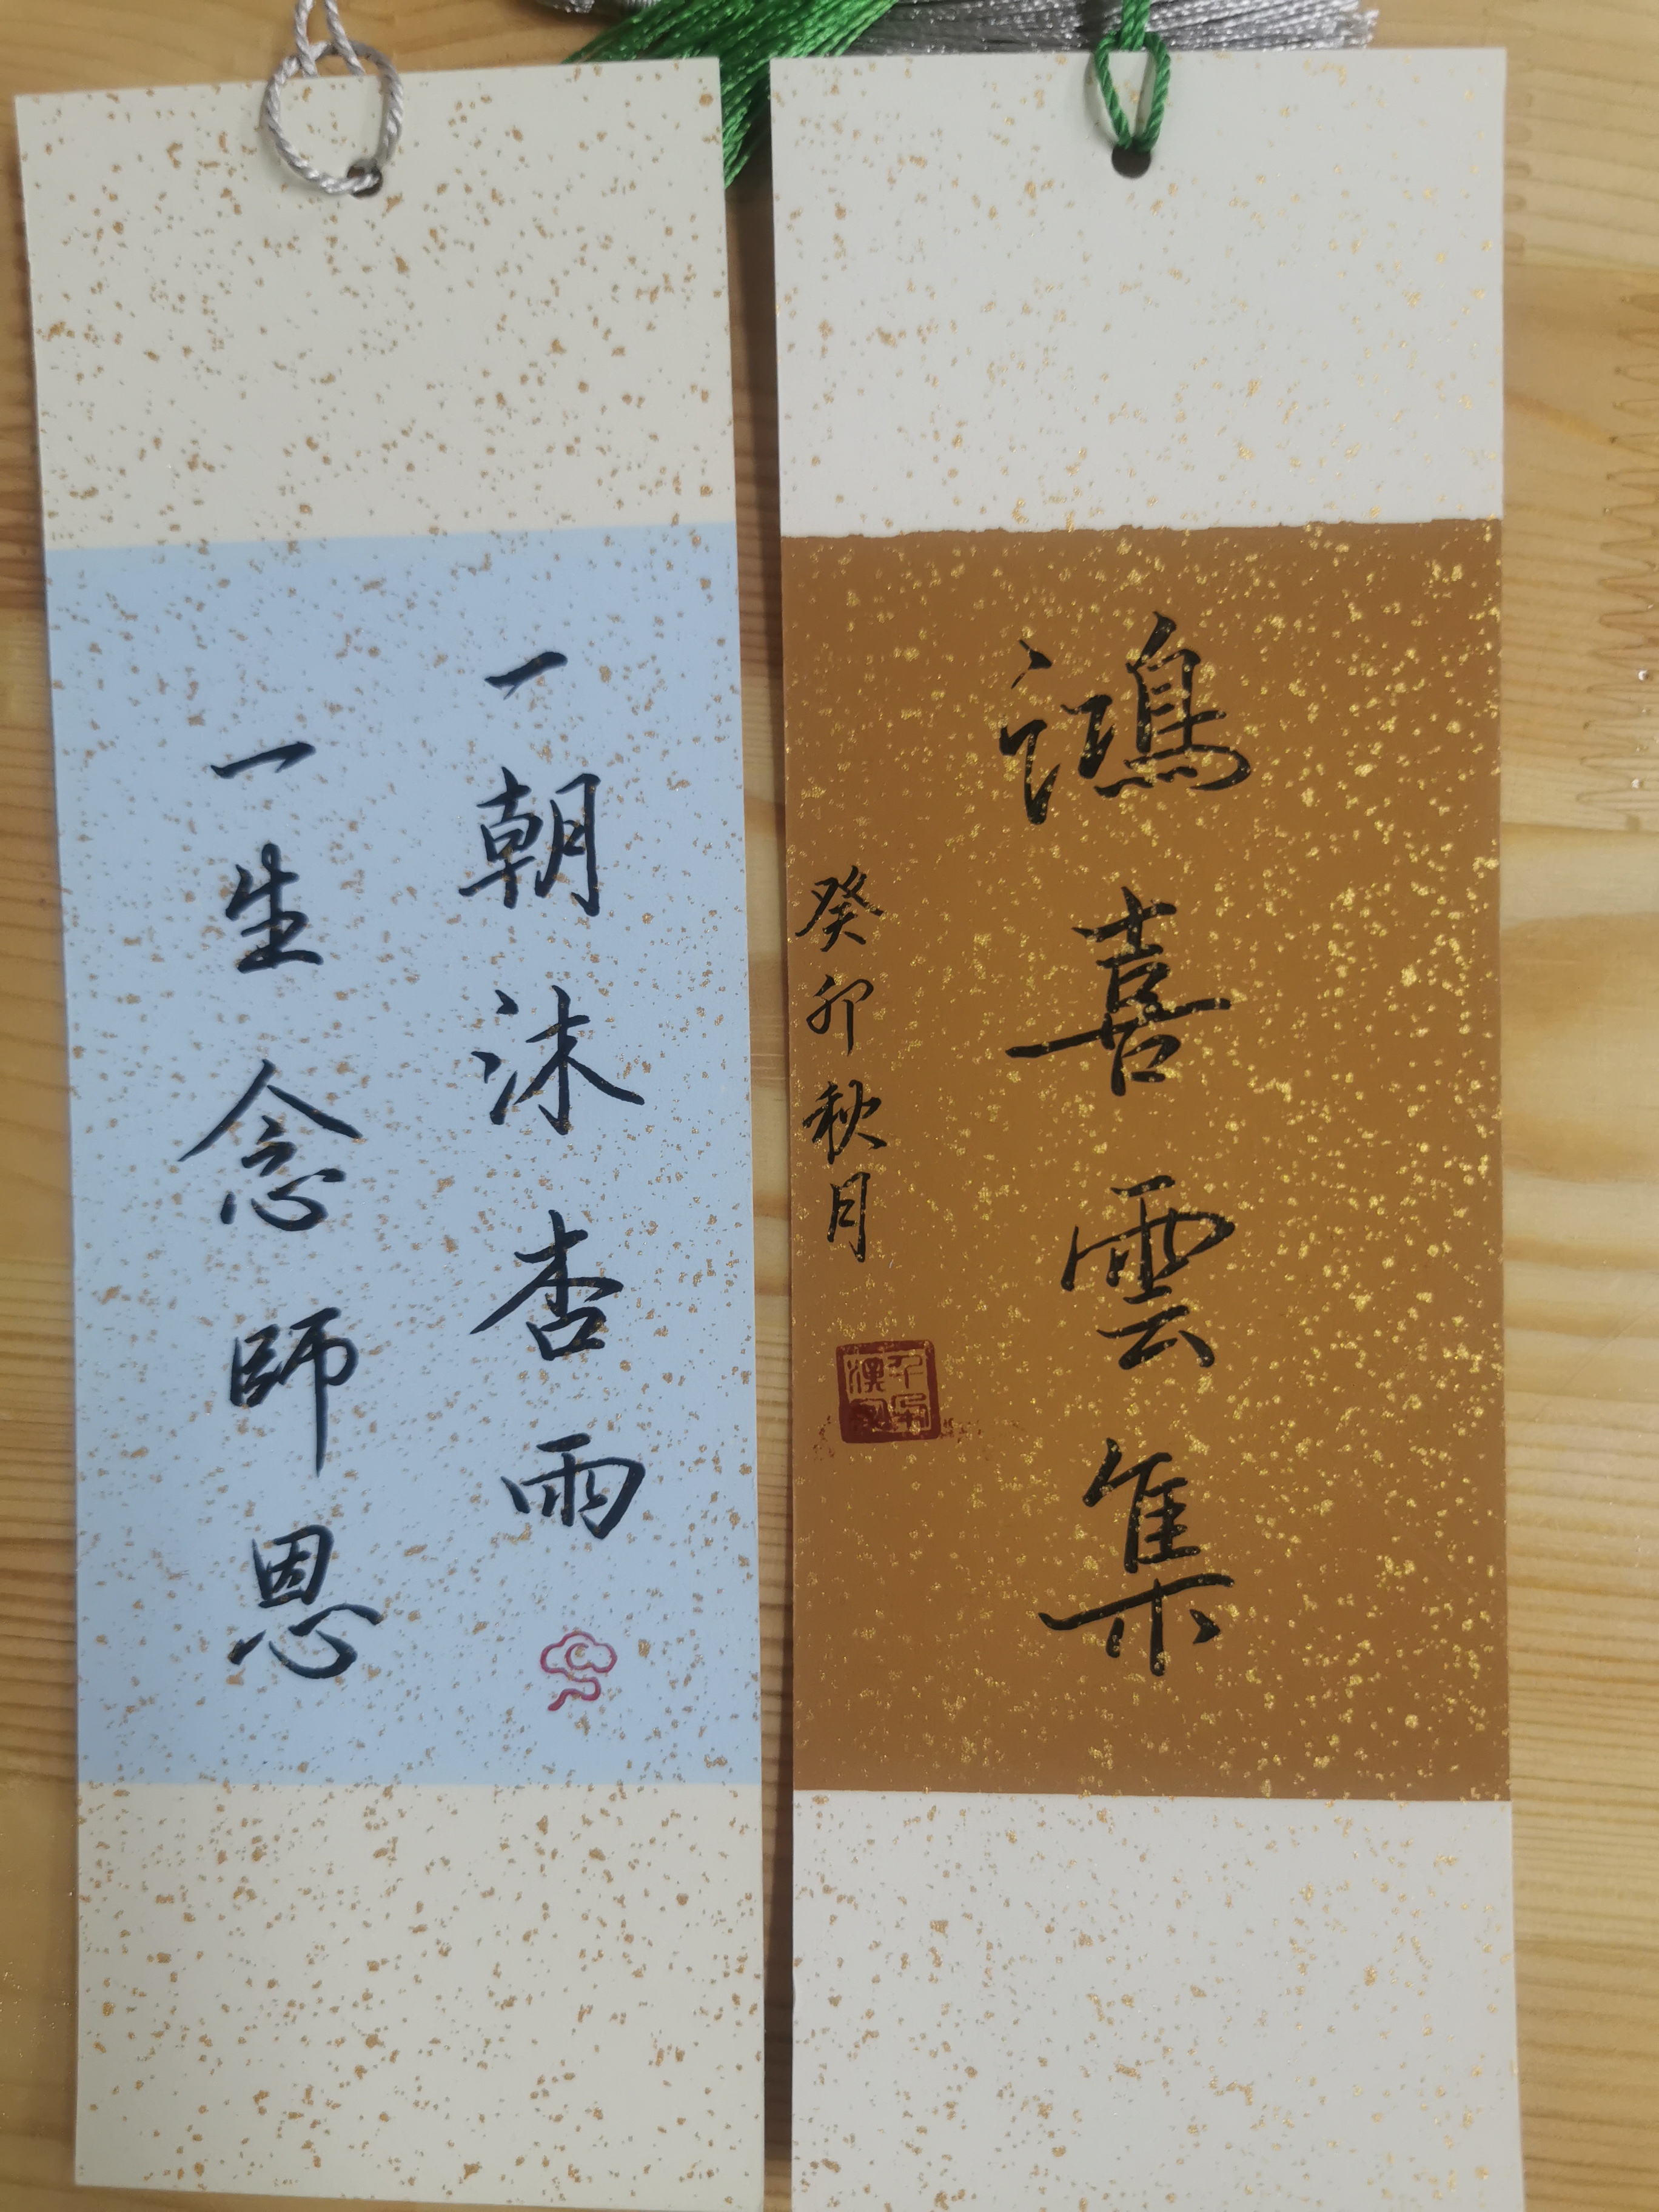 鴻喜雲集
癸卯秋月
一朝沫杏雨
一生念師恩